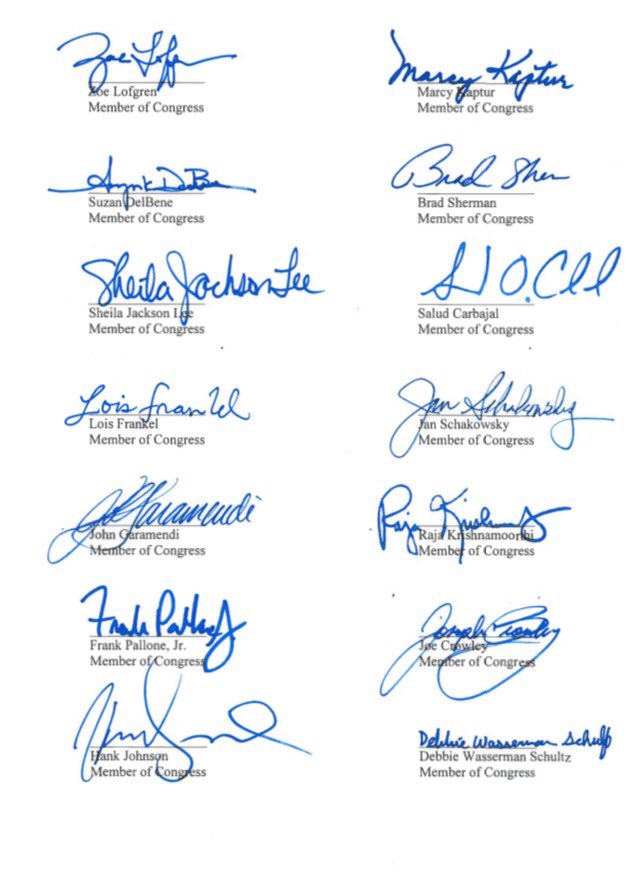 Zoe Lofgren
Zoe Lofgren
Member of Congress
Marcy Kaptur
Marcy Kaptur
Member of Congress
Suzan DelBene
Suzan DelBene
Member of Congress
Brad Sherman
Brad Sherman
Member of Congress
Sheila Jackson Lee
Sheila Jackson Lee
Member of Congress
Salud Carbajal
Member of Congress
Lois Frankel
Lois Frankel
Member of Congress
Jan Schakowsky
Jan Schakowsky
Member of Congress
John Garamendi
John Garamendi
Member of Congress
Raja Krishnamoorthi
Raja Krishnamoorthi
Member of Congress
Frank Pallone Jr
Frank Pallone, Jr.
Member of Congress
Joseph Crowley
Joe Crowley
Member of Congress
Hank Johnson
Member of Congress
Debbie Wasserman Schultz
Debbie Wasserman Schultz
Member of Congress